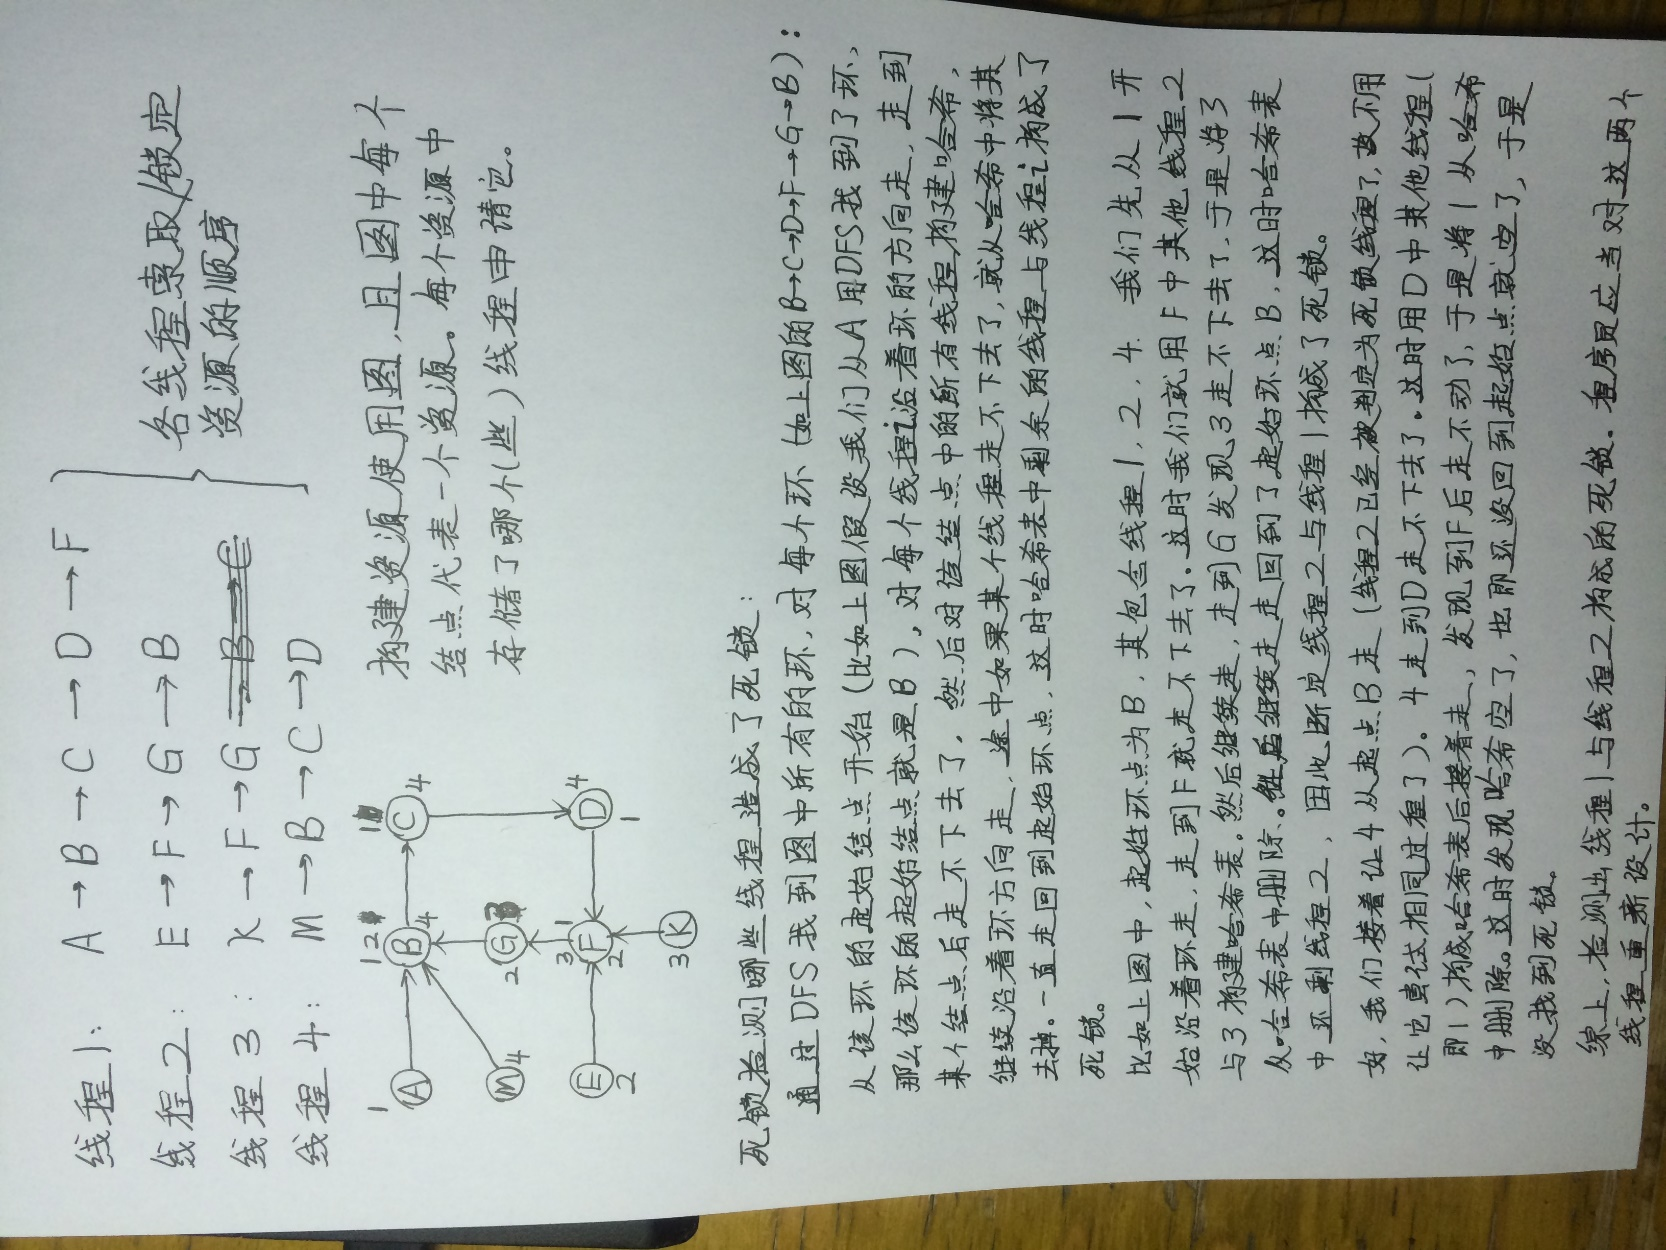 线程1: A→B→C→D→F
线程2: E→F→G→B
线程3: K→F→G
线程4: M→B→C→D
各线程索取/锁定
资源的顺序
1 A
M 4
E 2
1 2 B 4
2 G 3
3 F 1 2
3 K
1 C 4
D 4 1
构建资源使用图,且图中每个
结点代表一个资源。每个资源中
存储了哪个(些)线程申请它。
死锁检测哪些线程造成了死锁:
通过DFS找到图中所有的环,对每个环(如上图的B→C→D→F→G→B):
从该环的起始结点开始(比如上图假设我们从A用DFS找到了环,
那么该环的起始结点就是B),对每个线程让沿着环的方向走,走到
某个结点后走不下去了,然后对该结点中的所有线程构建哈希,
继续沿着环方向走,途中如果某个线程走不下去了,就从哈希中将其
去掉。一直走回到起始环点,这时哈希表中剩余的线程与线程i构成了
死锁。
比如上图中,起始环点为B,其包含线程1,2,4.我们先从1开
始沿着环走,走到F就走不下去了.这时我们就用F中其他线程2
与3构建哈希表.然后继续走,走到G发现3走不下去了,于是将3
从哈希表中删除.然后继续走走回到了起始环点B,这时哈希表
中还剩线程2,因此断定线程2与线程1构成了死锁。
好,我们接着让4从起点B走(线程2已经被判定为死锁线程了,故不用
让它再试相同过程了)。4走到D走不下去了.这时用D中其他线程(
即1)构成哈希表后接着走,发现到F后走不动了,于是将1从哈希
中删除。这时发现哈希空了,也即还没回到起始点就空了,于是
没找到死锁。
综上,检测出线程1与线程2构成的死锁.程序员应当对这两个
线程重新设计。